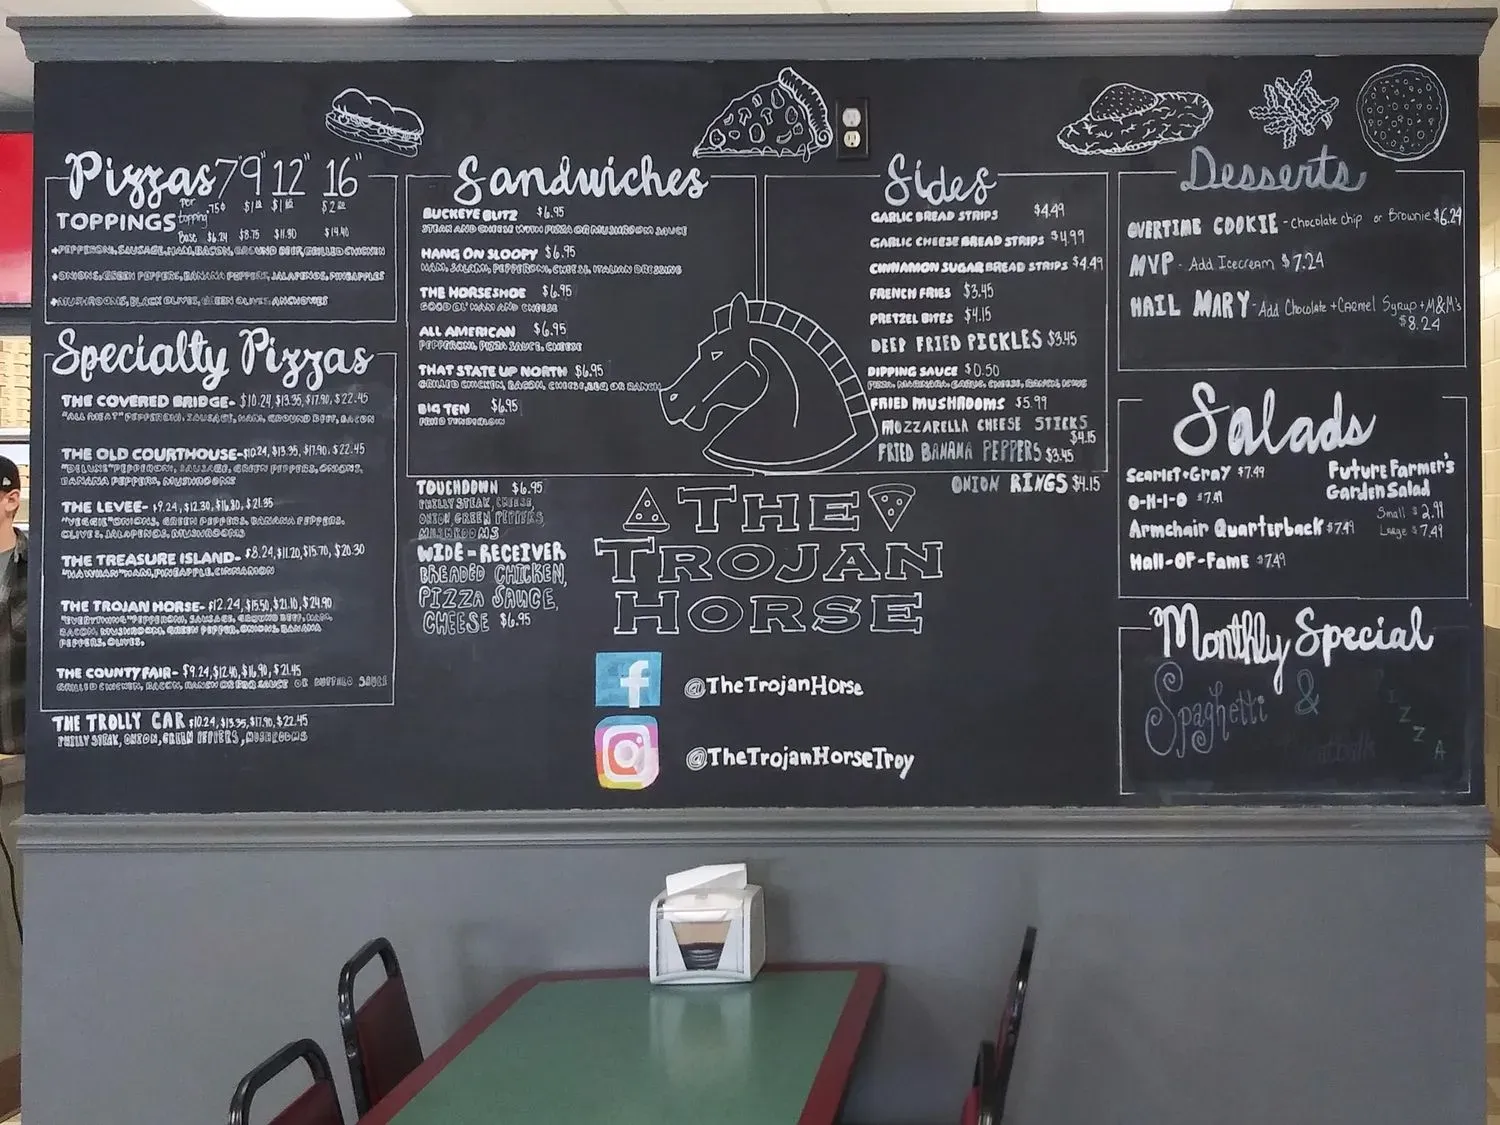 Pizzas 7" 9" 12" 16"
TOPPINGS per topping .75¢
Base $6.24 $8.75 $11.90 $14.40
+PEPPERONI, SAUSAGE, HAM, BACON, GROUND BEEF, GRILLED CHICKEN
+ONIONS, GREEN PEPPERS, BANANA PEPPERS, JALAPENOS, PINEAPPLES
+MUSHROOMS, BLACK OLIVES, GREEN OLIVES, ANCHOVIES
Specialty Pizzas
THE COVERED BRIDGE- $10.24, $13.35, $17.90, $22.45
"ALL MEAT" PEPPERONI, SAUSAGE, HAM, GROUND BEEF, BACON
THE OLD COURTHOUSE- $10.24, $13.35, $17.90, $22.45
"DELUXE" PEPPERONI, SAUSAGE, GREEN PEPPERS, ONIONS,
BANANA PEPPERS, MUSHROOMS
THE LEVEE- $9.24, $12.30, $16.80, $21.35
"VEGGIE" ONIONS, GREEN PEPPERS, BANANA PEPPERS,
OLIVES, JALAPENOS, MUSHROOMS
THE TREASURE ISLAND- $8.24, $11.20, $15.70, $20.30
"HAWIIAN" HAM, PINEAPPLE, CINNAMON
THE TROJAN HORSE- $12.24, $15.50, $21.10, $24.90
"EVERYTHING" PEPPERONI, SAUSAGE, GROUND BEEF, HAM,
BACON, MUSHROOM, GREEN PEPPER, ONIONS, BANANA
PEPPERS, OLIVES.
THE COUNTY FAIR- $9.24, $12.40, $16.90, $21.45
GRILLED CHICKEN, BACON, RANCH OR BBQ SAUCE OR BUFFALO SAUCE
THE TROLLY CAR $10.24, $13.35, $17.90, $22.45
PHILLY STEAK, ONION, GREEN PEPPERS, MUSHROOMS
Sandwiches
BUCKEYE BLITZ $6.95
STEAK AND CHEESE WITH PIZZA OR MUSHROOM SAUCE
HANG ON SLOOPY $6.95
HAM, SALAMI, PEPPERONI, CHEESE, ITALIAN DRESSING
THE HORSESHOE $6.95
GOOD OL' HAM AND CHEESE
ALL AMERICAN $6.95
PEPPERONI, PIZZA SAUCE, CHEESE
THAT STATE UP NORTH $6.95
GRILLED CHICKEN, BACON, CHEESE, BBQ OR RANCH
BIG TEN $6.95
FRIED TENDERLOIN
TOUCHDOWN $6.95
PHILLY STEAK, CHEESE,
ONION, GREEN PEPPERS,
MUSHROOMS
WIDE-RECEIVER
BREADED CHICKEN,
PIZZA SAUCE,
CHEESE $6.95
Sides
GARLIC BREAD STRIPS $4.49
GARLIC CHEESE BREAD STRIPS $4.99
CINNAMON SUGAR BREAD STRIPS $4.49
FRENCH FRIES $3.45
PRETZEL BITES $4.15
DEEP FRIED PICKLES $3.45
DIPPING SAUCE $0.50
PIZZA, MARINARA, GARLIC, CHEESE, RANCH,
FRIED MUSHROOMS $5.99
MOZZARELLA CHEESE STICKS
$4.15
FRIED BANANA PEPPERS $3.45
ONION RINGS $4.15
THE
TROJAN
HORSE
f @TheTrojanHorse
@TheTrojanHorseTroy
Desserts
OVERTIME COOKIE - Chocolate Chip or Brownie $6.24
MVP - Add Icecream $7.24
HAIL MARY - Add Chocolate + Carmel Syrup + M&M's
$8.24
Salads
Scarlet+Gray $7.49
O-H-I-O $7.49
Armchair Quarterback $7.49
Hall-Of-Fame $7.49
Future Farmer's
Garden Salad
Small $2.99
Large $7.49
Monthly Special
Spaghetti &